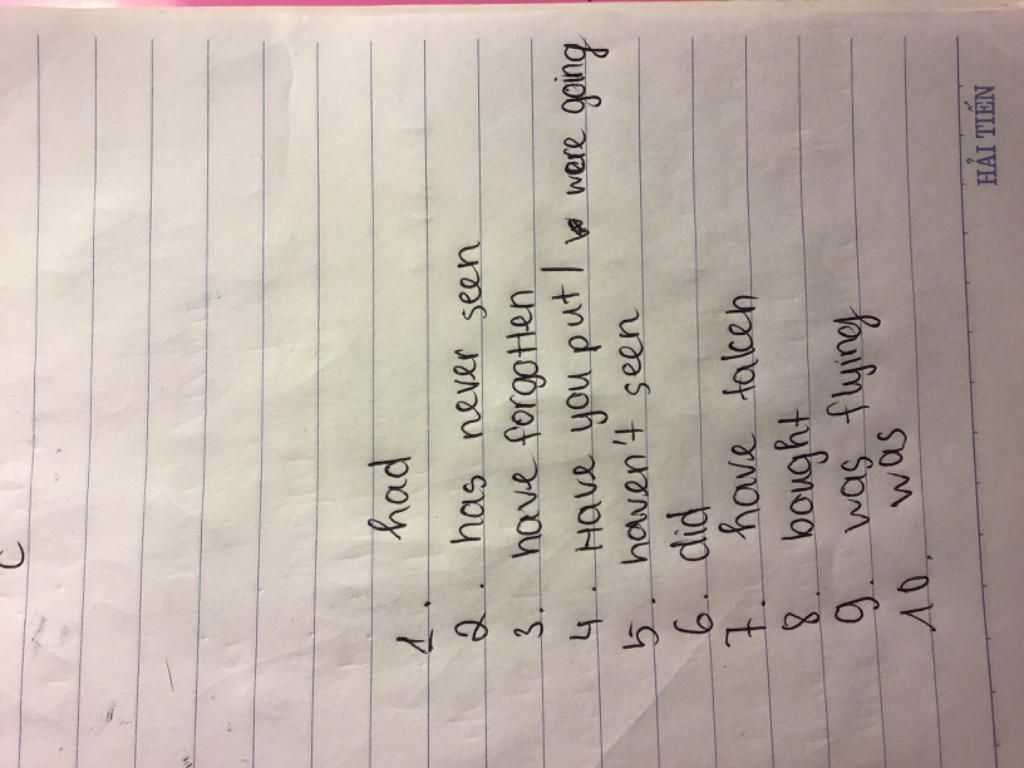 C
1. had
2. has never seen
3. have forgotten
4. Have you put / were going
5. haven't seen
6. did
7. have taken
8. bought
9. was flying
10. was
HẢI TIẾN